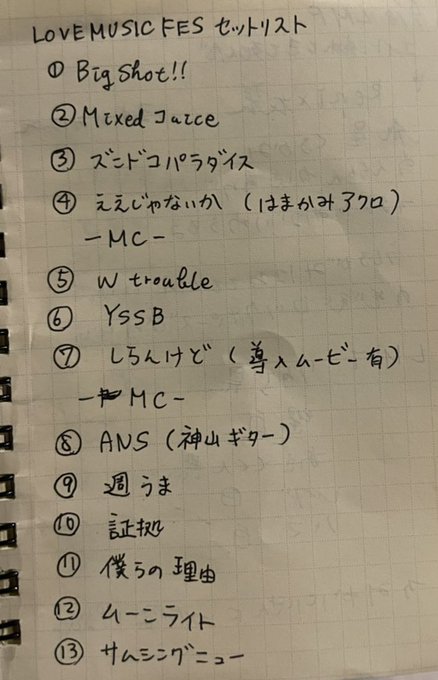 LOVE MUSIC FES セットリスト
① Big Shot!!
② Mixed Juice
③ ズンドコパラダイス
④ ええじゃないか (はまかみアクロ)
-MC-
⑤ W trouble
⑥ YSSB
⑦ しらんけど (導入ムービー有)
-MC-
⑧ ANS (神山ギター)
⑨ 週うま
⑩ 証拠
⑪ 僕らの理由
⑫ ムーンライト
⑬ サムシングニュー